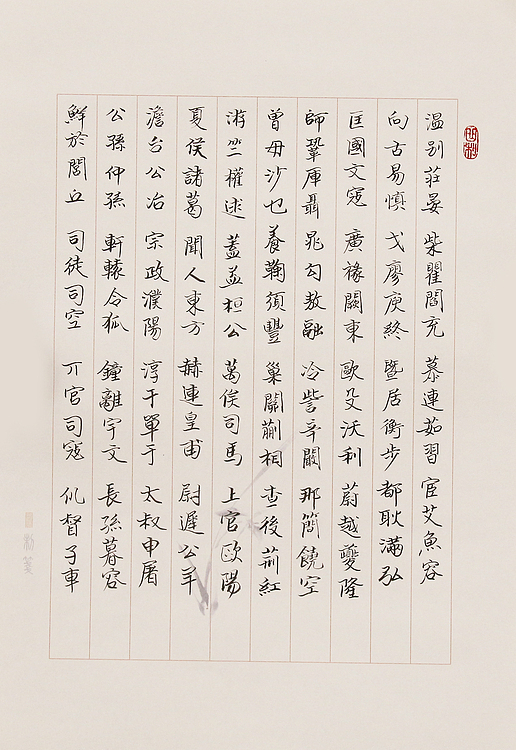 温别莊晏 柴瞿閻充 慕連茹習 宦艾魚容
向古易慎 戈廖庾終 暨居衡步 都耿滿弘
匡國文寇 廣祿闕東 歐殳沃利 蔚越夔隆
師鞏庫聶 晁勾敖融 冷訾辛闞 那簡饒空
曾毋沙乜 養鞠須豐 巢關蒯相 查後荊紅
游竺權逑 蓋益桓公 萬俟司馬 上官歐陽
夏侯諸葛 聞人東方 赫連皇甫 尉遲公羊
澹台公冶 宗政濮陽 淳于單于 太叔申屠
公孫仲孫 軒轅令狐 鐘離宇文 長孫慕容
鮮於閭丘 司徒司空 亓官司寇 仉督子車